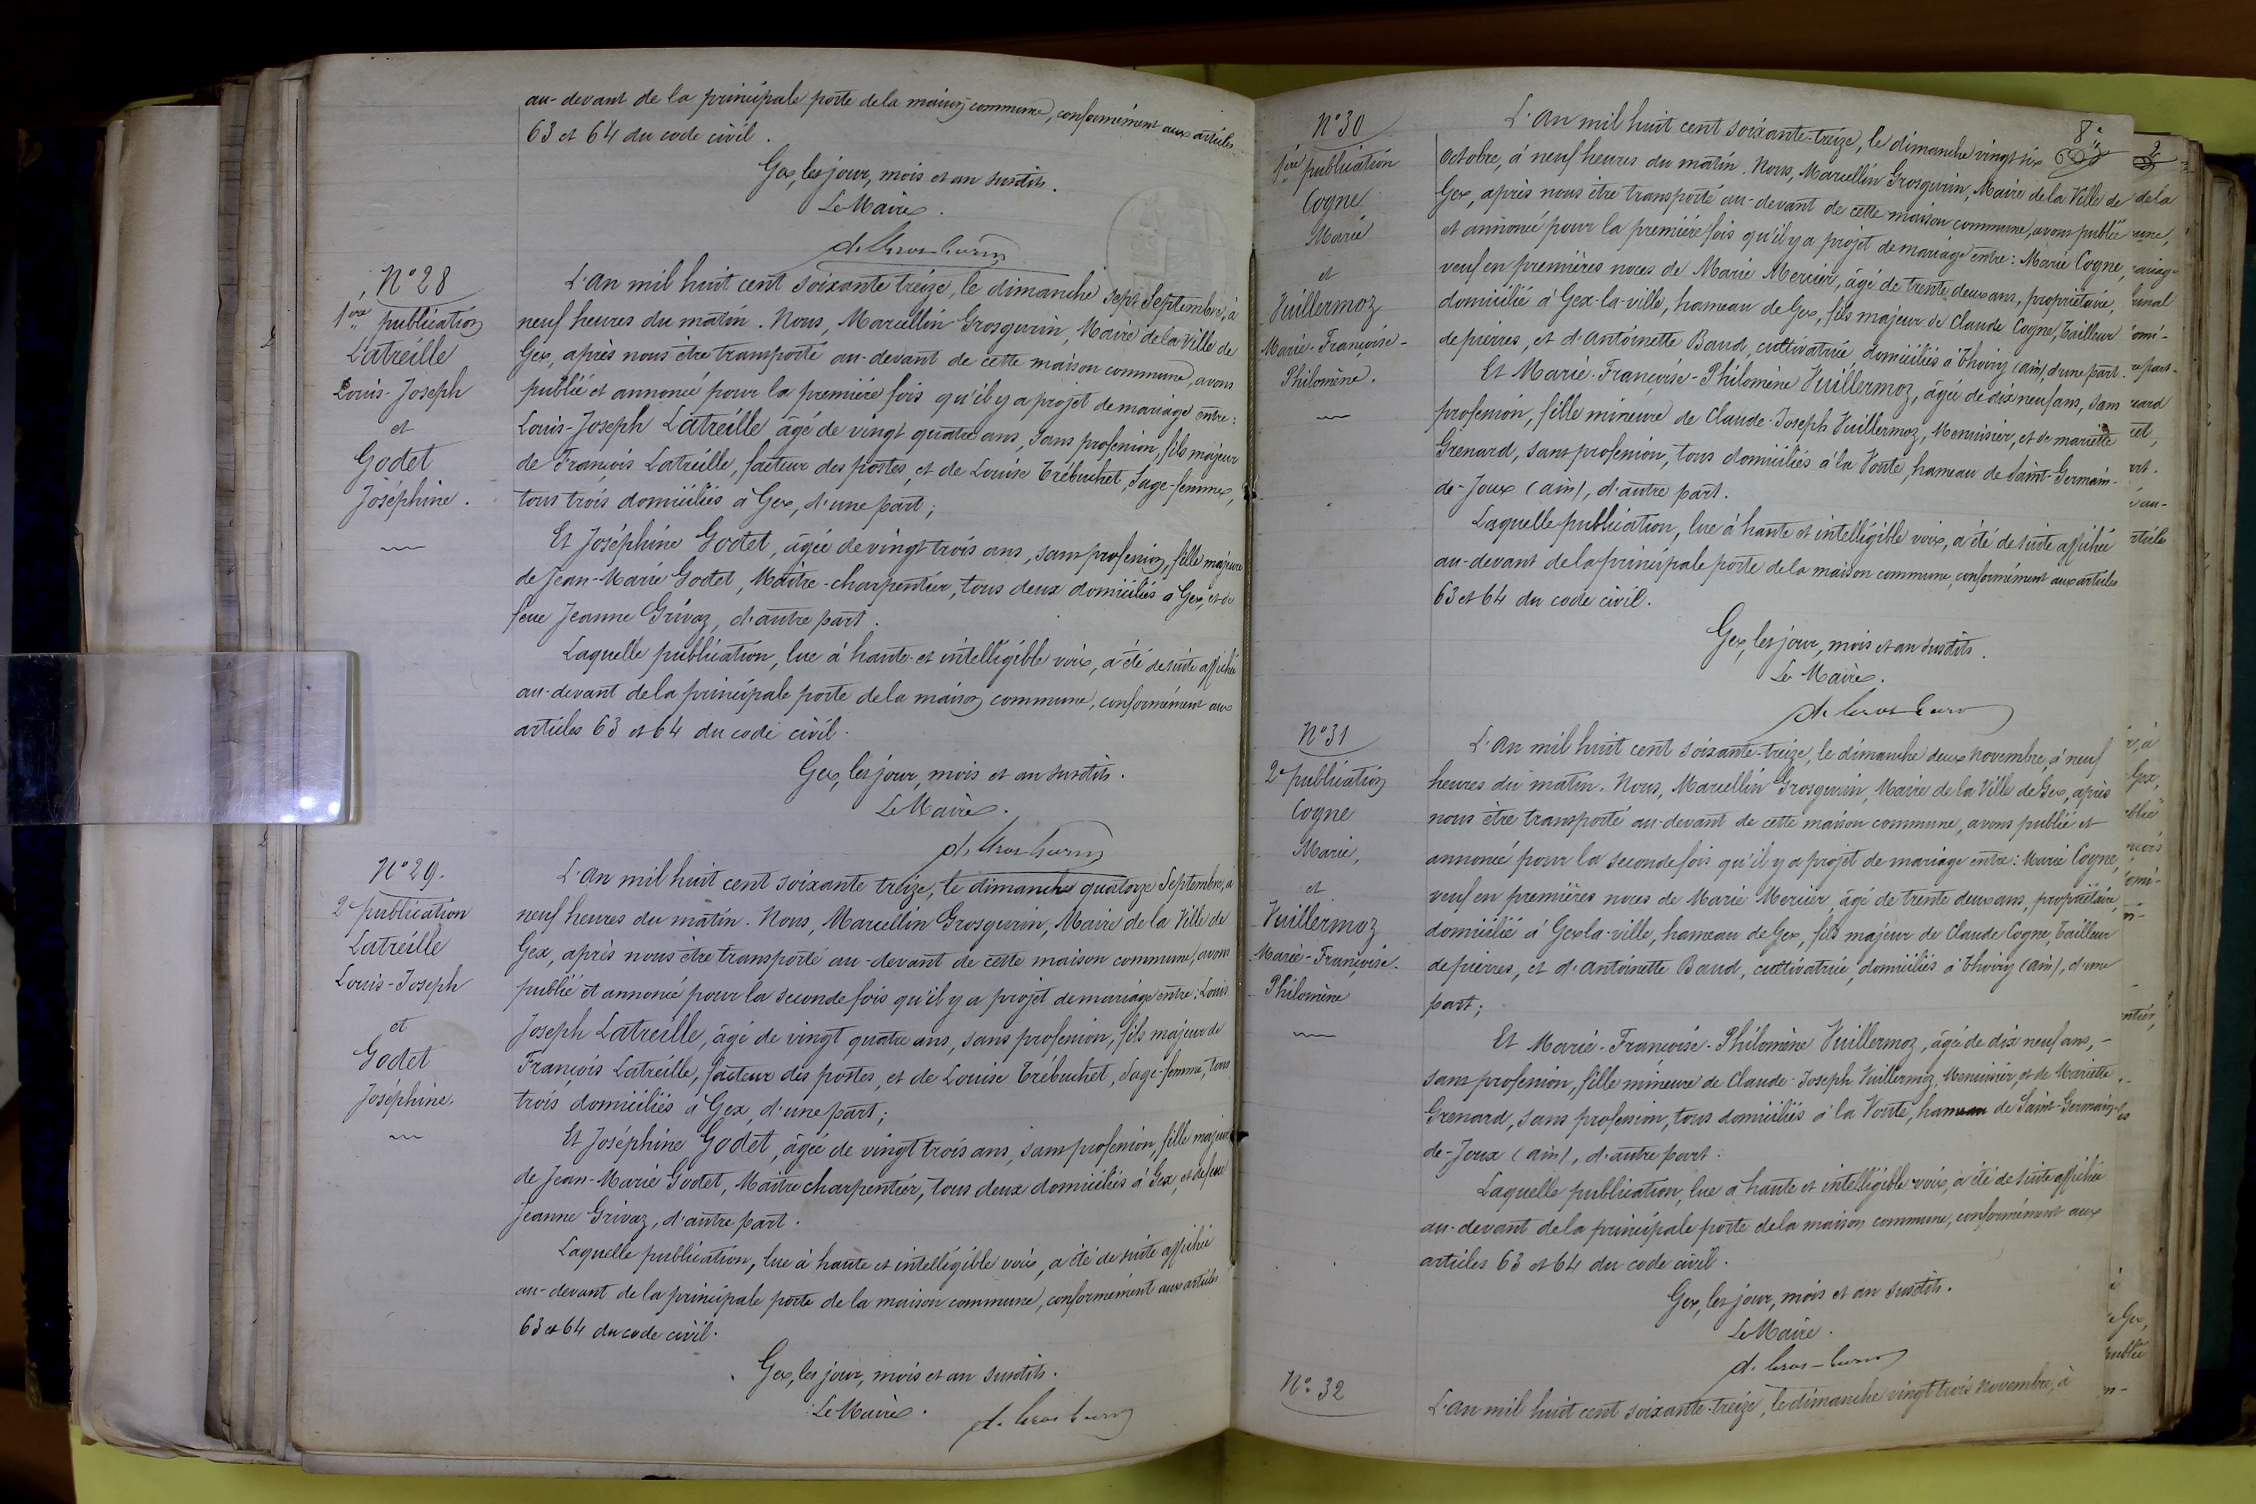 au-devant de la principale porte de la maison commune, conformément aux articles
63 et 64 du code civil.
Gex, les jour, mois et an susdits.
Le Maire.
N° 28
1ère publication
Latreille
Louis-Joseph
et
Godet
Joséphine.
L'an mil huit cent soixante treize, le dimanche sept Septembre, à
neuf heures du matin. Nous, Marcellin Grosgurin, Maire de la Ville de
Gex, après nous être transporté au-devant de cette maison commune, avons
publié et annoncé pour la première fois qu'il y a projet de mariage entre:
Louis-Joseph Latreille âgé de vingt quatre ans, sans profession, fils majeur
de François Latreille, facteur des postes, et de Louise Trébuchet, Sage-femme,
tous trois domiciliés à Gex, d'une part;
Et Joséphine Godet, âgée de vingt trois ans, sans profession, fille majeure
de Jean-Marie Godet, Maître-charpentier, tous deux domiciliés à Gex, et de
feue Jeanne Grivaz, d'autre part.
Laquelle publication, lue à haute et intelligible voix, a été de suite affichée
au-devant de la principale porte de la maison commune, conformément aux
articles 63 et 64 du code civil.
Gex, les jour, mois et an susdits.
Le Maire.
N° 29.
2e publication
Latreille
Louis-Joseph
et
Godet
Joséphine.
L'an mil huit cent soixante treize, le dimanche quatorze Septembre, à
neuf heures du matin. Nous, Marcellin Grosgurin, Maire de la Ville de
Gex, après nous être transporté au-devant de cette maison commune, avons
publié et annoncé pour la seconde fois qu'il y a projet de mariage entre: Louis
Joseph Latreille, âgé de vingt quatre ans, sans profession, fils majeur de
François Latreille, facteur des postes, et de Louise Trébuchet, Sage-femme, tous
trois domiciliés à Gex, d'une part;
Et Joséphine Godet, âgée de vingt trois ans, sans profession, fille majeure
de Jean-Marie Godet, Maître charpentier, tous deux domiciliés à Gex, et de feue
Jeanne Grivaz, d'autre part.
Laquelle publication, lue à haute et intelligible voix, a été de suite affichée
au-devant de la principale porte de la maison commune, conformément aux articles
63 et 64 du code civil.
Gex, les jour, mois et an susdits.
Le Maire.
8
N° 30
1ère publication
Cogne
Marie
et
Vuillermoz
Marie-Françoise-
Philomène.
L'an mil huit cent soixante-treize, le dimanche vingt six
Octobre, à neuf heures du matin. Nous, Marcellin Grosgurin, Maire de la Ville de
Gex, après nous être transporté au-devant de cette maison commune, avons publié
et annoncé pour la première fois qu'il y a projet de mariage entre: Marie Cogne,
veuf en premières noces de Marie Mercier, âgé de trente deux ans, propriétaire,
domicilié à Gex-la-ville, hameau de Gex, fils majeur de Claude Cogne, Tailleur
de pierres, et d'Antoinette Baud, cultivatrice, domiciliés à Thoiry (ain), d'une part.
Et Marie-Françoise-Philomène Vuillermoz, âgée de dix neuf ans, sans
profession, fille mineure de Claude-Joseph Vuillermoz, Menuisier, et de mariette
Grenard, sans profession, tous domiciliés à la Voute, hameau de Saint-Germain-
de-Joux (ain), d'autre part.
Laquelle publication, lue à haute et intelligible voix, a été de suite affichée
au-devant de la principale porte de la maison commune, conformément aux articles
63 et 64 du code civil.
Gex, les jour, mois et an susdits.
Le Maire.
N° 31
2e publication
Cogne
Marie,
et
Vuillermoz
Marie-Françoise.
Philomène
L'an mil huit cent soixante-treize, le dimanche deux novembre, à neuf
heures du matin. Nous, Marcellin Grosgurin, Maire de la Ville de Gex, après
nous être transporté au-devant de cette maison commune, avons publié et
annoncé pour la seconde fois qu'il y a projet de mariage entre: Marie Cogne,
veuf en premières noces de Marie Mercier âgé de trente deux ans, propriétaire,
domicilié à Gex la-ville, hameau de Gex, fils majeur de Claude Cogne, Tailleur
de pierres, et d'Antoinette Baud, cultivatrice, domiciliés à Thoiry (ain), d'une
part;
Et Marie-Françoise-Philomène Vuillermoz, âgée de dix neuf ans, -
sans profession, fille mineure de Claude-Joseph Vuillermoz, Menuisier, et de Mariette
Grenard, sans profession, tous domiciliés à la Voute, hameau de Saint-Germain-
de-Joux (ain), d'autre part.
Laquelle publication, lue à haute et intelligible voix, a été de suite affichée
au-devant de la principale porte de la maison commune, conformément aux
articles 63 et 64 du code civil.
Gex, les jour, mois et an susdits.
Le Maire.
N° 32
L'an mil huit cent soixante-treize, le dimanche vingt trois novembre, à